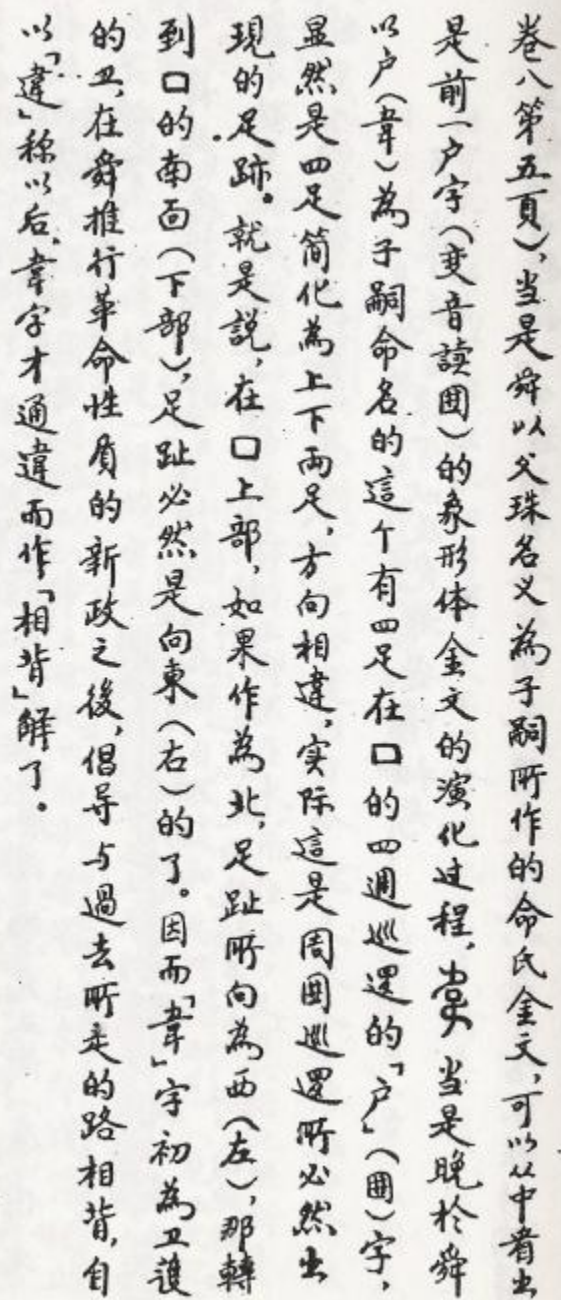 卷八第五頁)，当是舜以父珠名义為子嗣所作的命氏金文，可以从中看出
是前一户字(变音讀围)的象形体金文的演化过程，当是晚於舜
以户(韋)為子嗣命名的這个有四足在口的四週巡逻的「户」(围)字，
显然是四足简化為上下兩足，方向相違，实际這是周围巡逻所必然出
現的足跡。就是説，在口上部，如果作為北，足趾所向為西(左)，那轉
到口的南面(下部)，足趾必然是向東(右)的了。因而「韋」字初為卫護
的卫，在舜推行革命性质的新政之後，倡导与過去所走的路相背，自
以「違」称以后，韋字才通違而作「相背」解了。